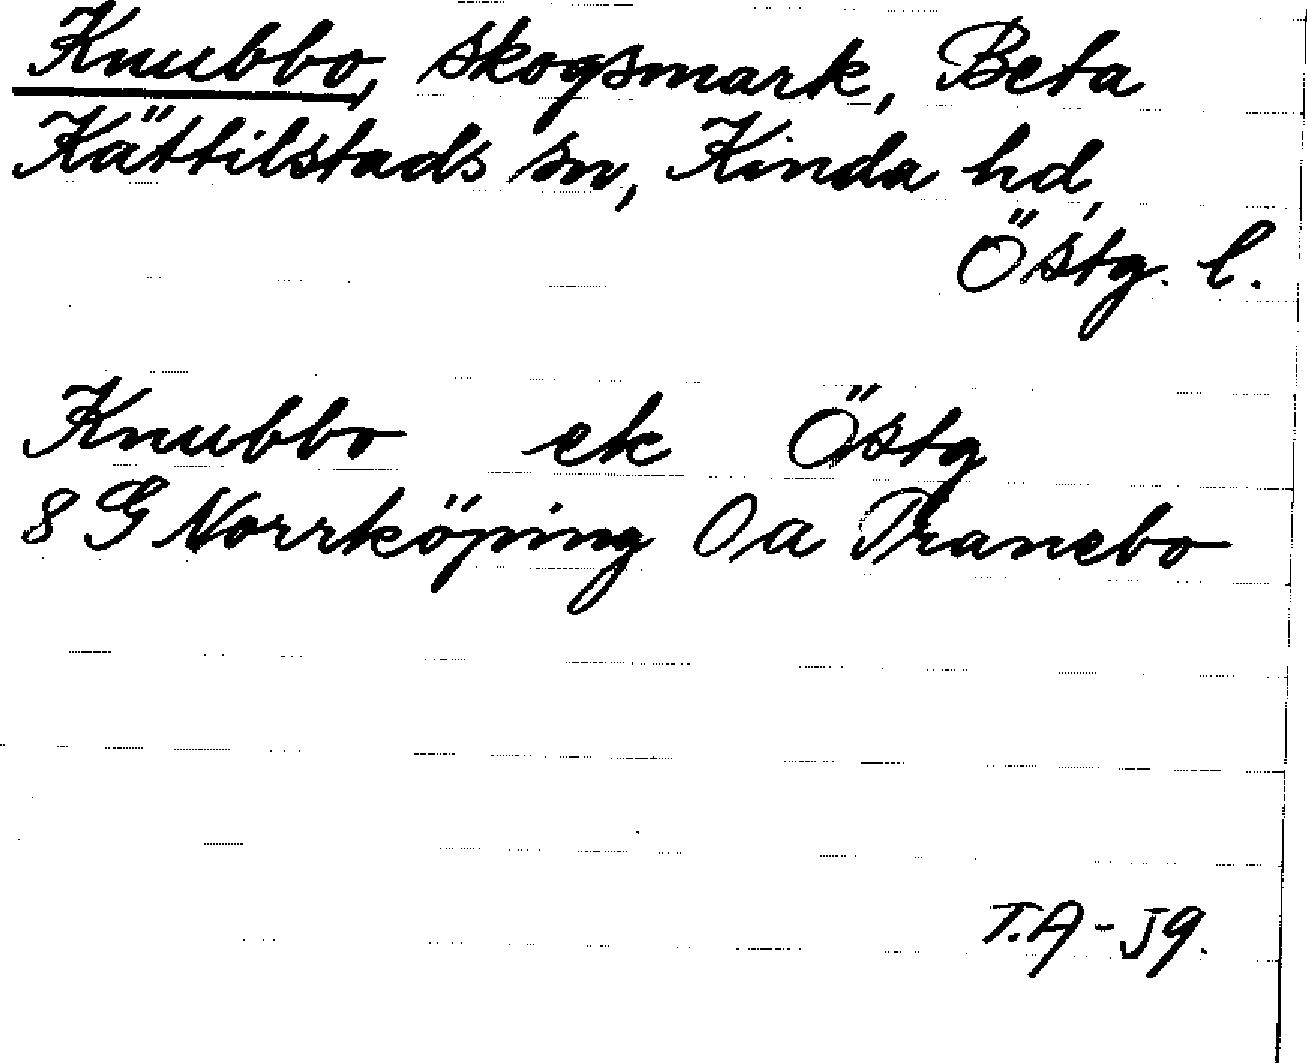 Knubbo, skogsmark, Beta
Kättilstads sn, Kinda hd,
Östg. l.
Knubbo ek Östg
8 G Norrköping 0 a Tranebo
T.A-59.